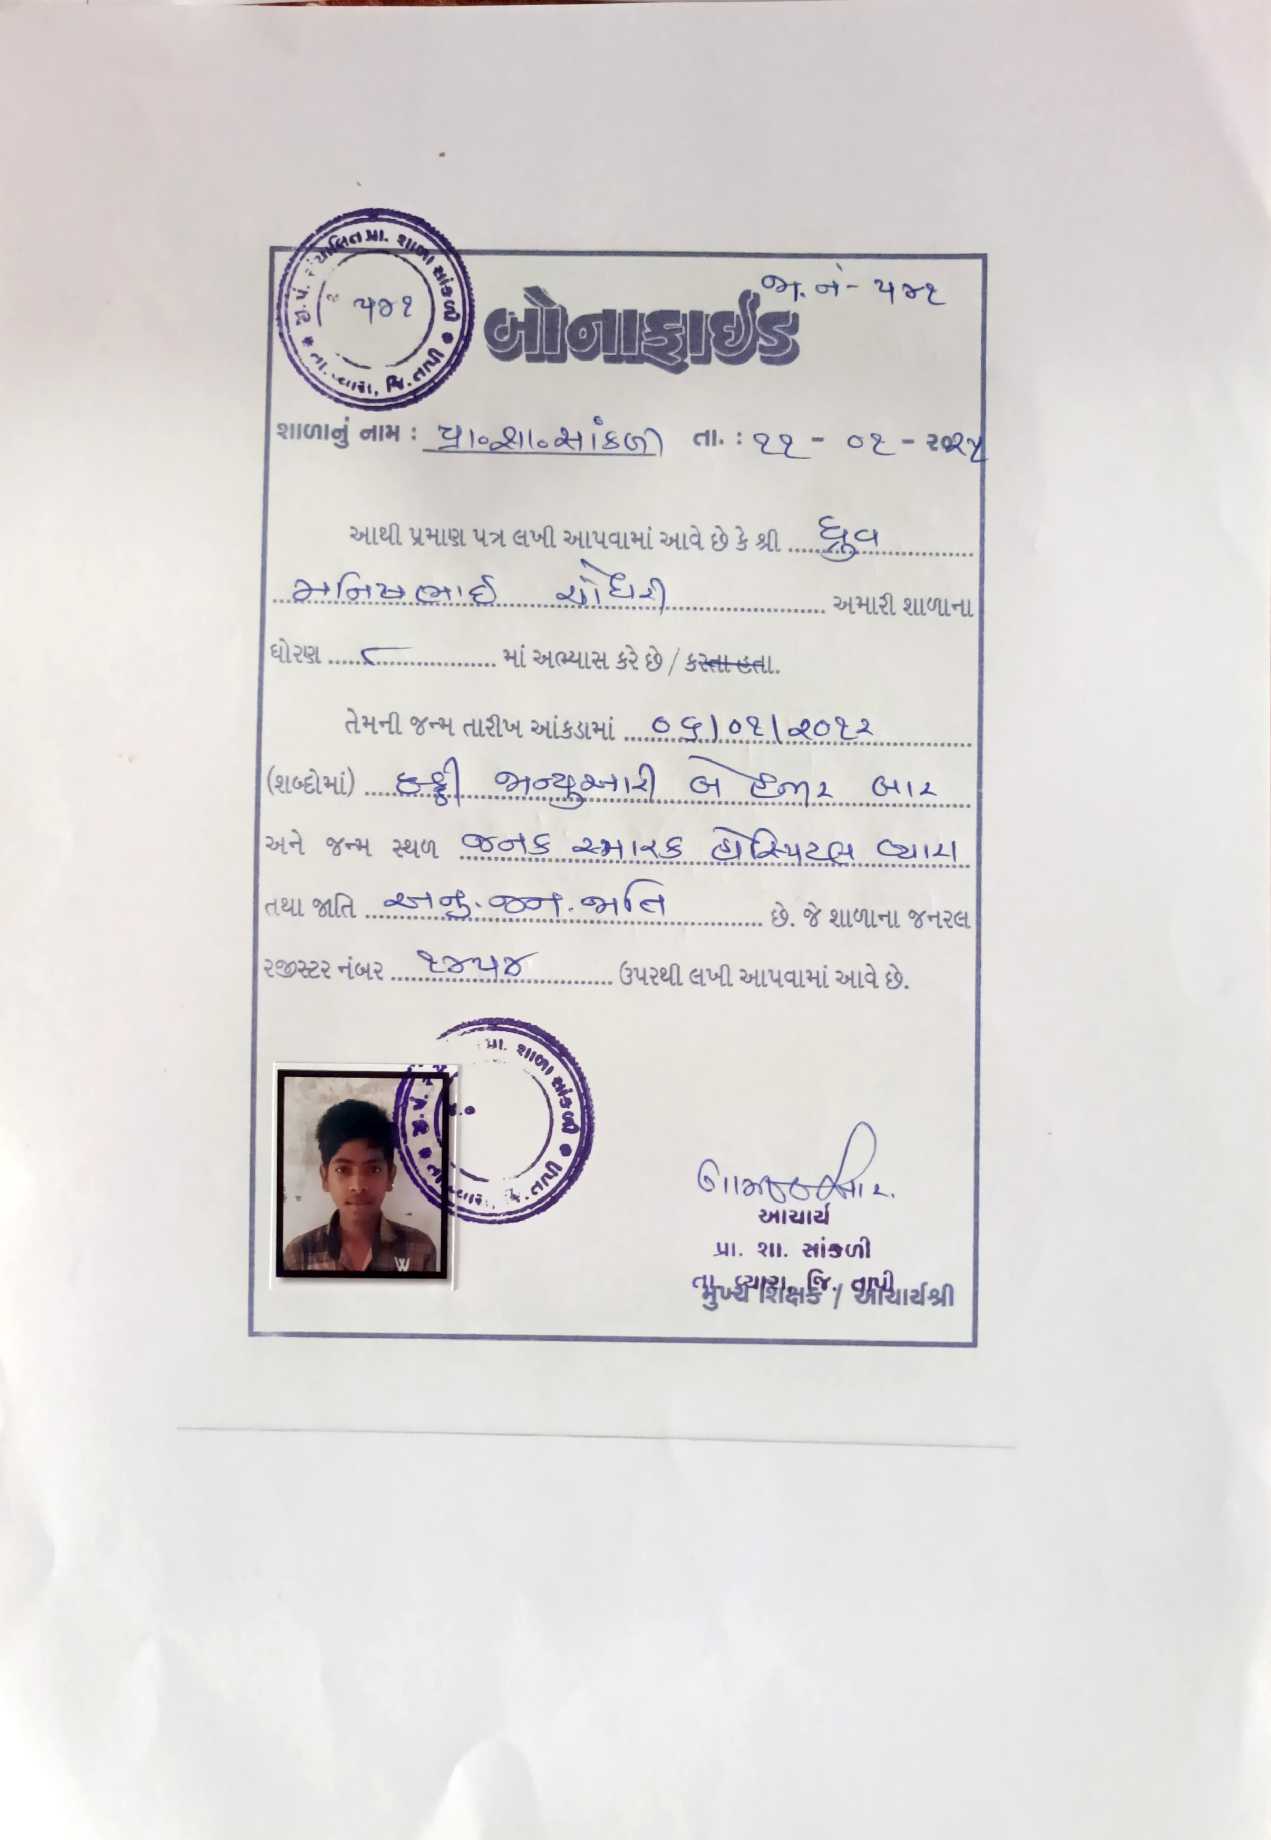 જી. પં. સંચાલિત પ્રા. શાળા સાંકળી
૫૪૧
તા. વ્યારા, જિ. તાપી
જા.નં - ૫૪૧
બોનાફાઈડ
શાળાનું નામ : પ્રા૦શા૦સાંકળી તા. : ૧૧ - ૦૧ - ૨૦૨૫
આથી પ્રમાણ પત્ર લખી આપવામાં આવે છે કે શ્રી ધ્રુવ
મનિષભાઈ ચૌધરી અમારી શાળાના
ધોરણ ૮ માં અભ્યાસ કરે છે / કરતા હતા.
તેમની જન્મ તારીખ આંકડામાં ૦૬/૦૧/૨૦૧૨
(શબ્દોમાં) છઠ્ઠી જાન્યુઆરી બે હજાર બાર
અને જન્મ સ્થળ જનક સ્મારક હોસ્પિટલ વ્યારા
તથા જાતિ અનુ. જન. જાતિ છે. જે શાળાના જનરલ
રજીસ્ટર નંબર ૧૪૫૪ ઉપરથી લખી આપવામાં આવે છે.
પ્રા. શાળા સાંકળી
તાપી
W
આચાર્ય
પ્રા. શા. સાંકળી
તા. વ્યારા, જિ. તાપી
મુખ્ય શિક્ષક / આચાર્યશ્રી